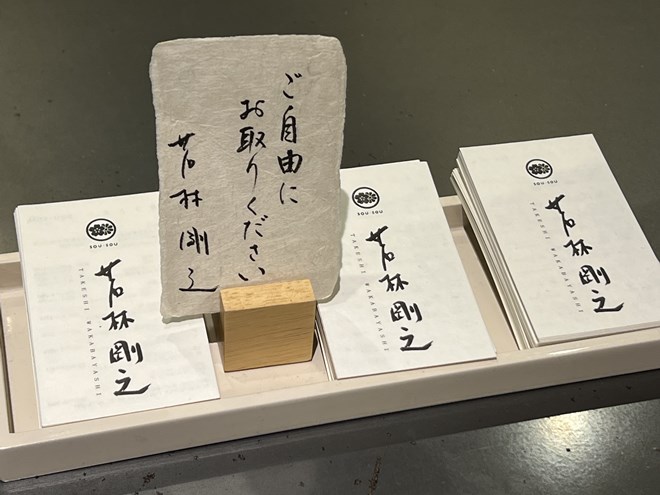 ご自由に
お取りください
若林剛之
SOU・SOU
若林剛之
TAKESHI WAKABAYASHI
SOU・SOU
若林剛之
TAKESHI WAKABAYASHI
SOU・SOU
若林剛之
TAKESHI WAKABAYASHI